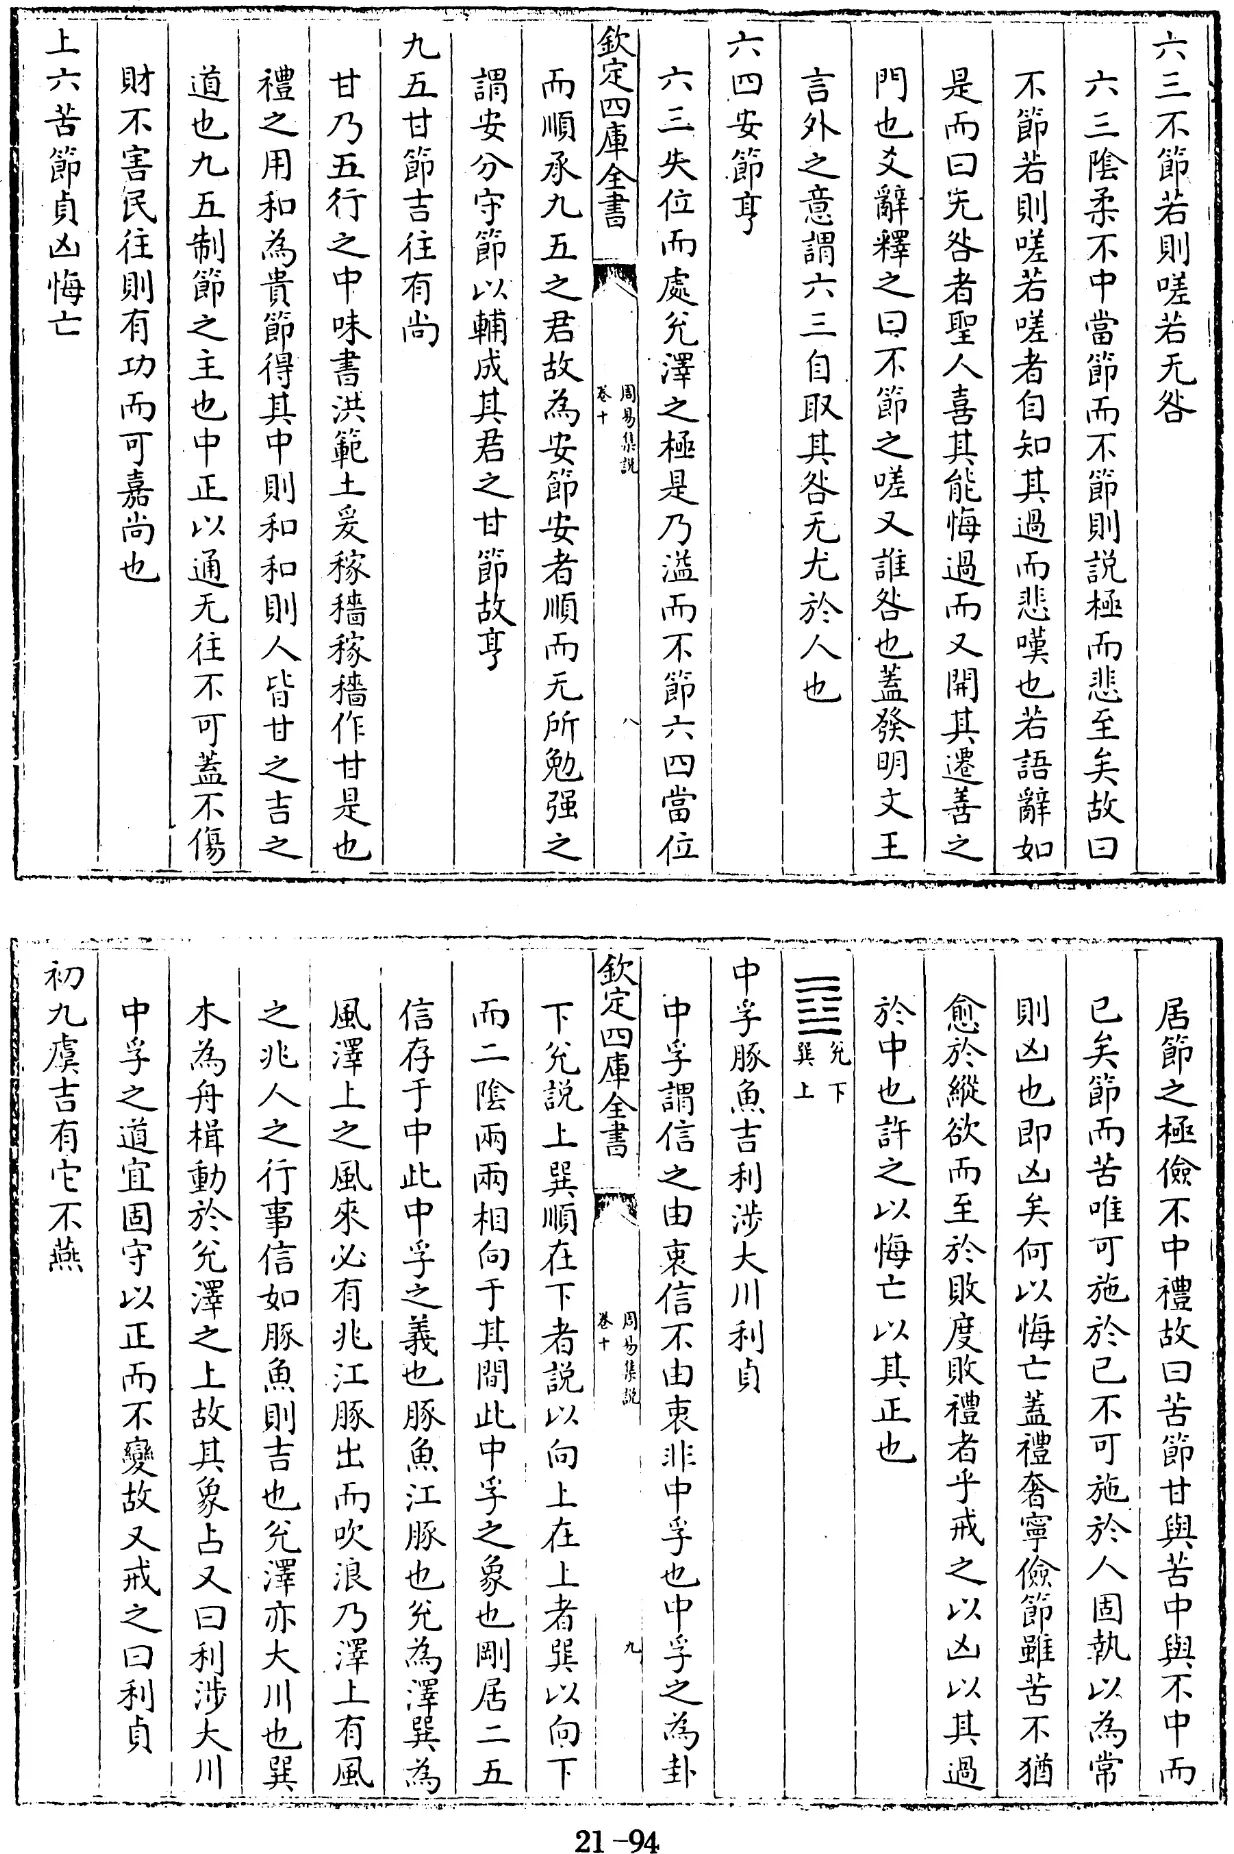 六三不節若則嗟若无咎
六三陰柔不中當節而不節則説極而悲至矣故曰
不節若則嗟若嗟者自知其過而悲嘆也若語辭如
是而曰无咎者聖人喜其能悔過而又開其遷善之
門也爻辭釋之曰不節之嗟又誰咎也蓋發明文王
言外之意謂六三自取其咎无尤於人也
六四安節亨
六三失位而處兊澤之極是乃溢而不節六四當位
欽定四庫全書
周易集説
卷十
八
而順承九五之君故為安節安者順而无所勉强之
謂安分守節以輔成其君之甘節故亨
九五甘節吉往有尚
甘乃五行之中味書洪範土爰稼穡稼穡作甘是也
禮之用和為貴節得其中則和和則人皆甘之吉之
道也九五制節之主也中正以通无往不可蓋不傷
財不害民往則有功而可嘉尚也
上六苦節貞凶悔亡
居節之極儉不中禮故曰苦節甘與苦中與不中而
已矣節而苦唯可施於已不可施於人固執以為常
則凶也即凶矣何以悔亡蓋禮奢寧儉節雖苦不猶
愈於縱欲而至於敗度敗禮者乎戒之以凶以其過
於中也許之以悔亡以其正也
兊下
巽上
中孚豚魚吉利涉大川利貞
中孚謂信之由衷信不由衷非中孚也中孚之為卦
欽定四庫全書
周易集説
卷十
九
下兊説上巽順在下者説以向上在上者巽以向下
而二陰兩兩相向于其間此中孚之象也剛居二五
信存于中此中孚之義也豚魚江豚也兊為澤巽為
風澤上之風來必有兆江豚出而吹浪乃澤上有風
之兆人之行事信如豚魚則吉也兊澤亦大川也巽
木為舟楫動於兊澤之上故其象占又曰利涉大川
中孚之道宜固守以正而不變故又戒之曰利貞
初九虞吉有它不燕
21-94